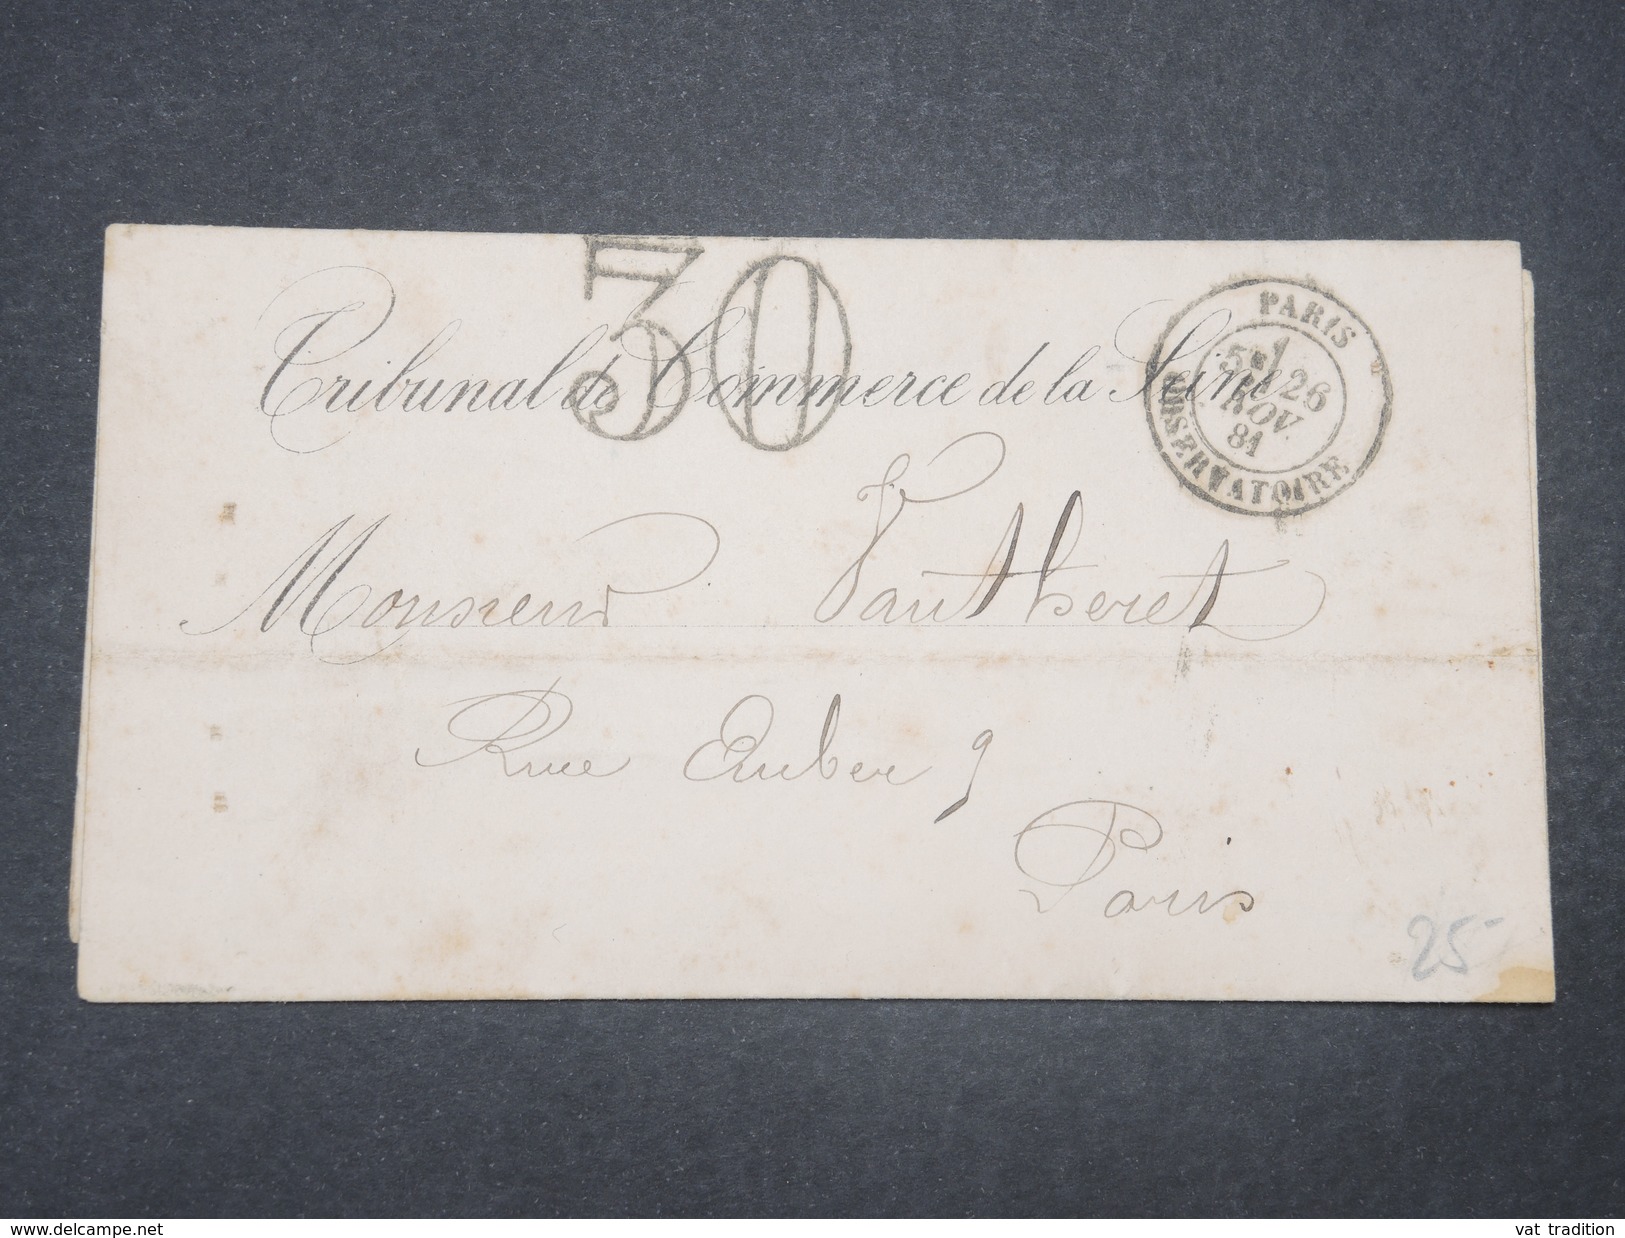 30
Tribunal de Commerce de la Seine
PARIS
5E 1
26
NOV.
81
OBSERVATOIRE
Monsieur Vautheret
Rue Auber 9
Paris
25-
www.delcampe.net
vat tradition